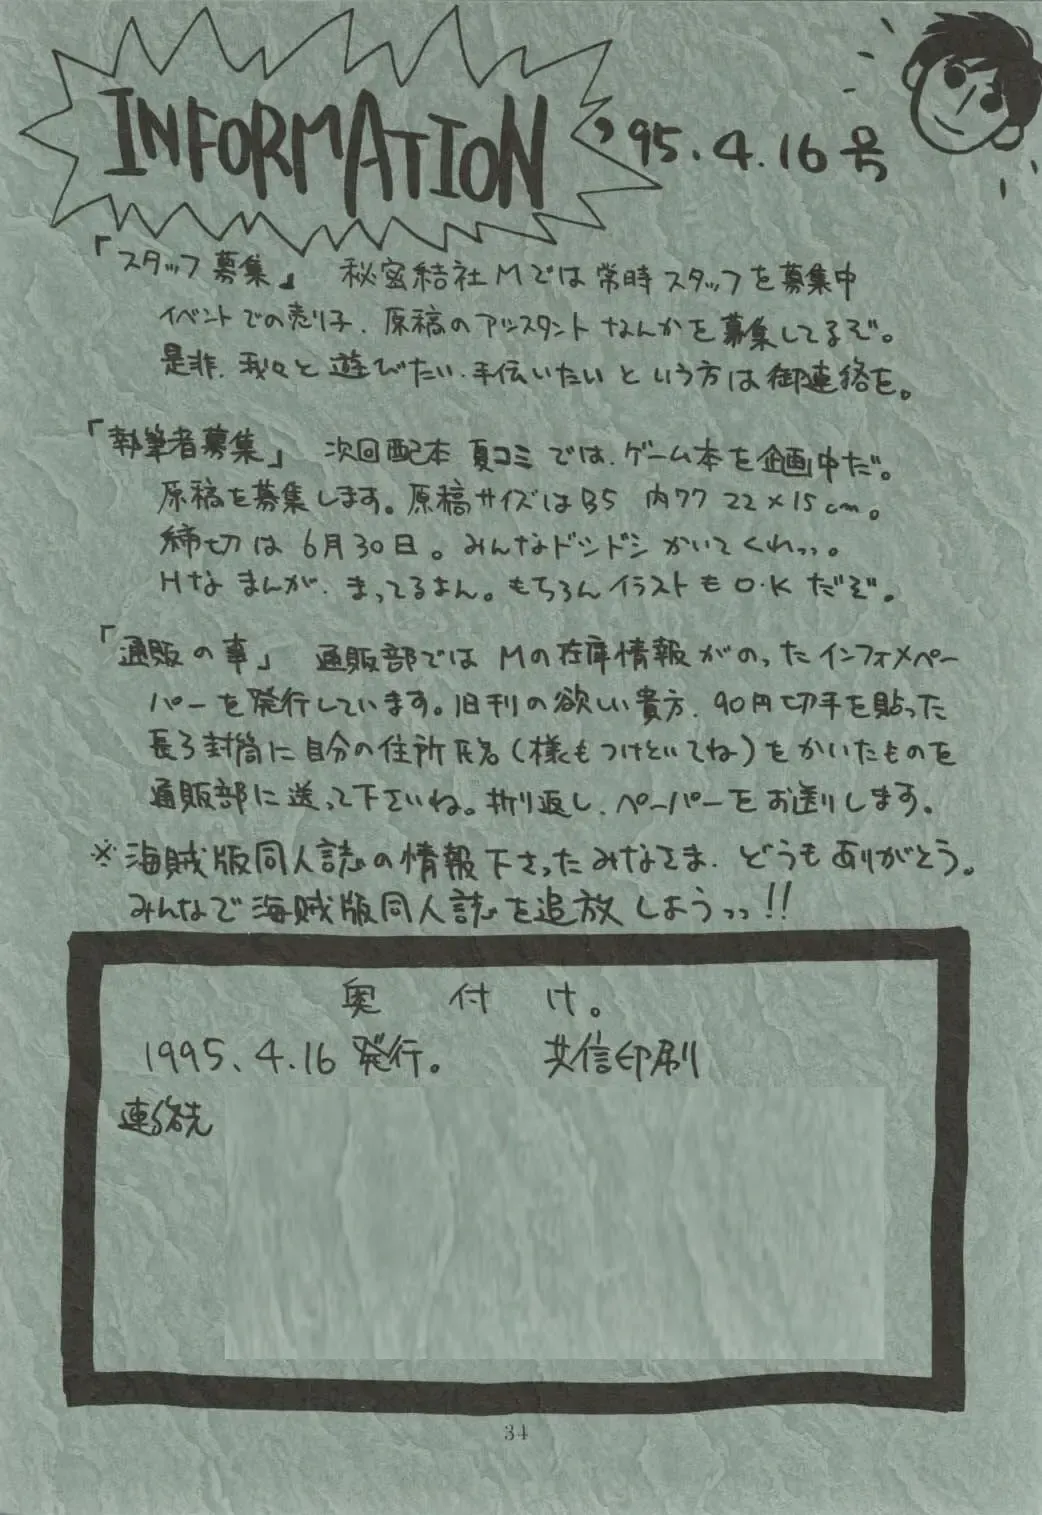 INFORMATION '95.4.16号
「スタッフ募集」 秘密結社Mでは常時スタッフを募集中
イベントでの売り子、原稿のアシスタントなんかを募集してるぞ。
是非、我々と遊びたい、手伝いたいという方は御連絡を。
「執筆者募集」 次回配本 夏コミでは、ゲーム本を企画中だ。
原稿を募集します。原稿サイズはB5 内ワク 22×15cm。
締切は6月30日。みんなドシドシかいてくれっっ。
Hなまんが、まってるよん。もちろんイラストもO・Kだぞ。
「通販の事」 通販部ではMの在庫情報がのったインフォメペー
パーを発行しています。旧刊の欲しい貴方、90円切手を貼った
長3封筒に自分の住所氏名(様もつけといてね)をかいたものを
通販部に送って下さいね。折り返し、ペーパーをお送りします。
※海賊版同人誌の情報下さったみなさま、どうもありがとう。
みんなで海賊版同人誌を追放しようっっ!!
奥付け。
1995.4.16発行。 共信印刷
連絡先
34